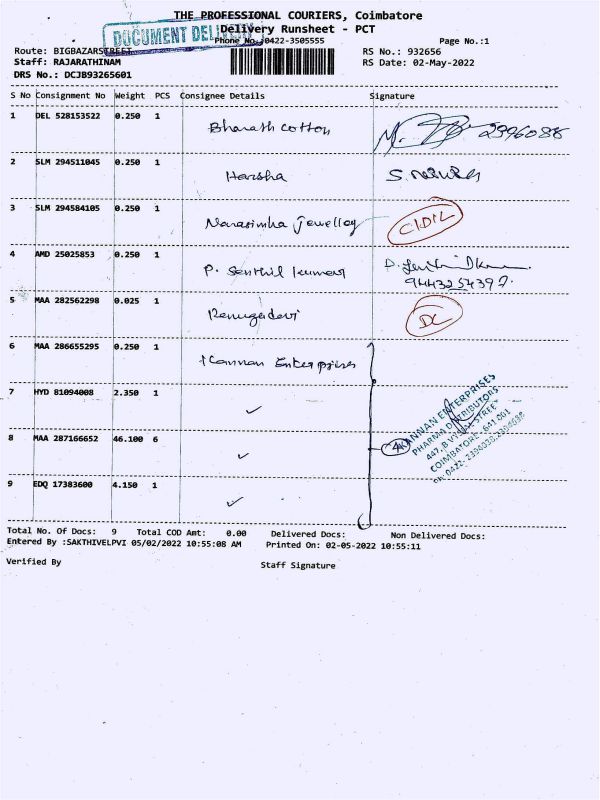 THE PROFESSIONAL COURIERS, Coimbatore
DOCUMENT DELI
Delivery Runsheet - PCT
Phone No.:0422-3505555
Page No.:1
Route: BIGBAZARSTREET
RS No.: 932656
Staff: RAJARATHINAM
RS Date: 02-May-2022
DRS No.: DCJB93265601
S No Consignment No Weight PCS Consignee Details Signature
1 DEL 528153522 0.250 1 Bharath Cotton 2396088
2 SLM 294511045 0.250 1 Harsha
3 SLM 294584105 0.250 1 Narasimha Jewellery
4 AMD 25025853 0.250 1 P. Senthil kumar
9443254397
5 MAA 282562298 0.025 1 Renugadevi DC
6 MAA 286655295 0.250 1 Kannan Enterprises
7 HYD 81094008 2.350 1
8 MAA 287166652 46.100 6 4
KANNAN ENTERPRISES
PHARMA DISTRIBUTORS
COIMBATORE - 641 001
9 EDQ 17383600 4.150 1
Total No. Of Docs: 9 Total COD Amt: 0.00 Delivered Docs: Non Delivered Docs:
Entered By :SAKTHIVELPVI 05/02/2022 10:55:08 AM Printed On: 02-05-2022 10:55:11
Verified By
Staff Signature